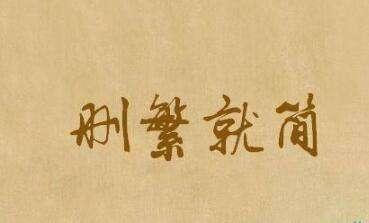 删繁就简